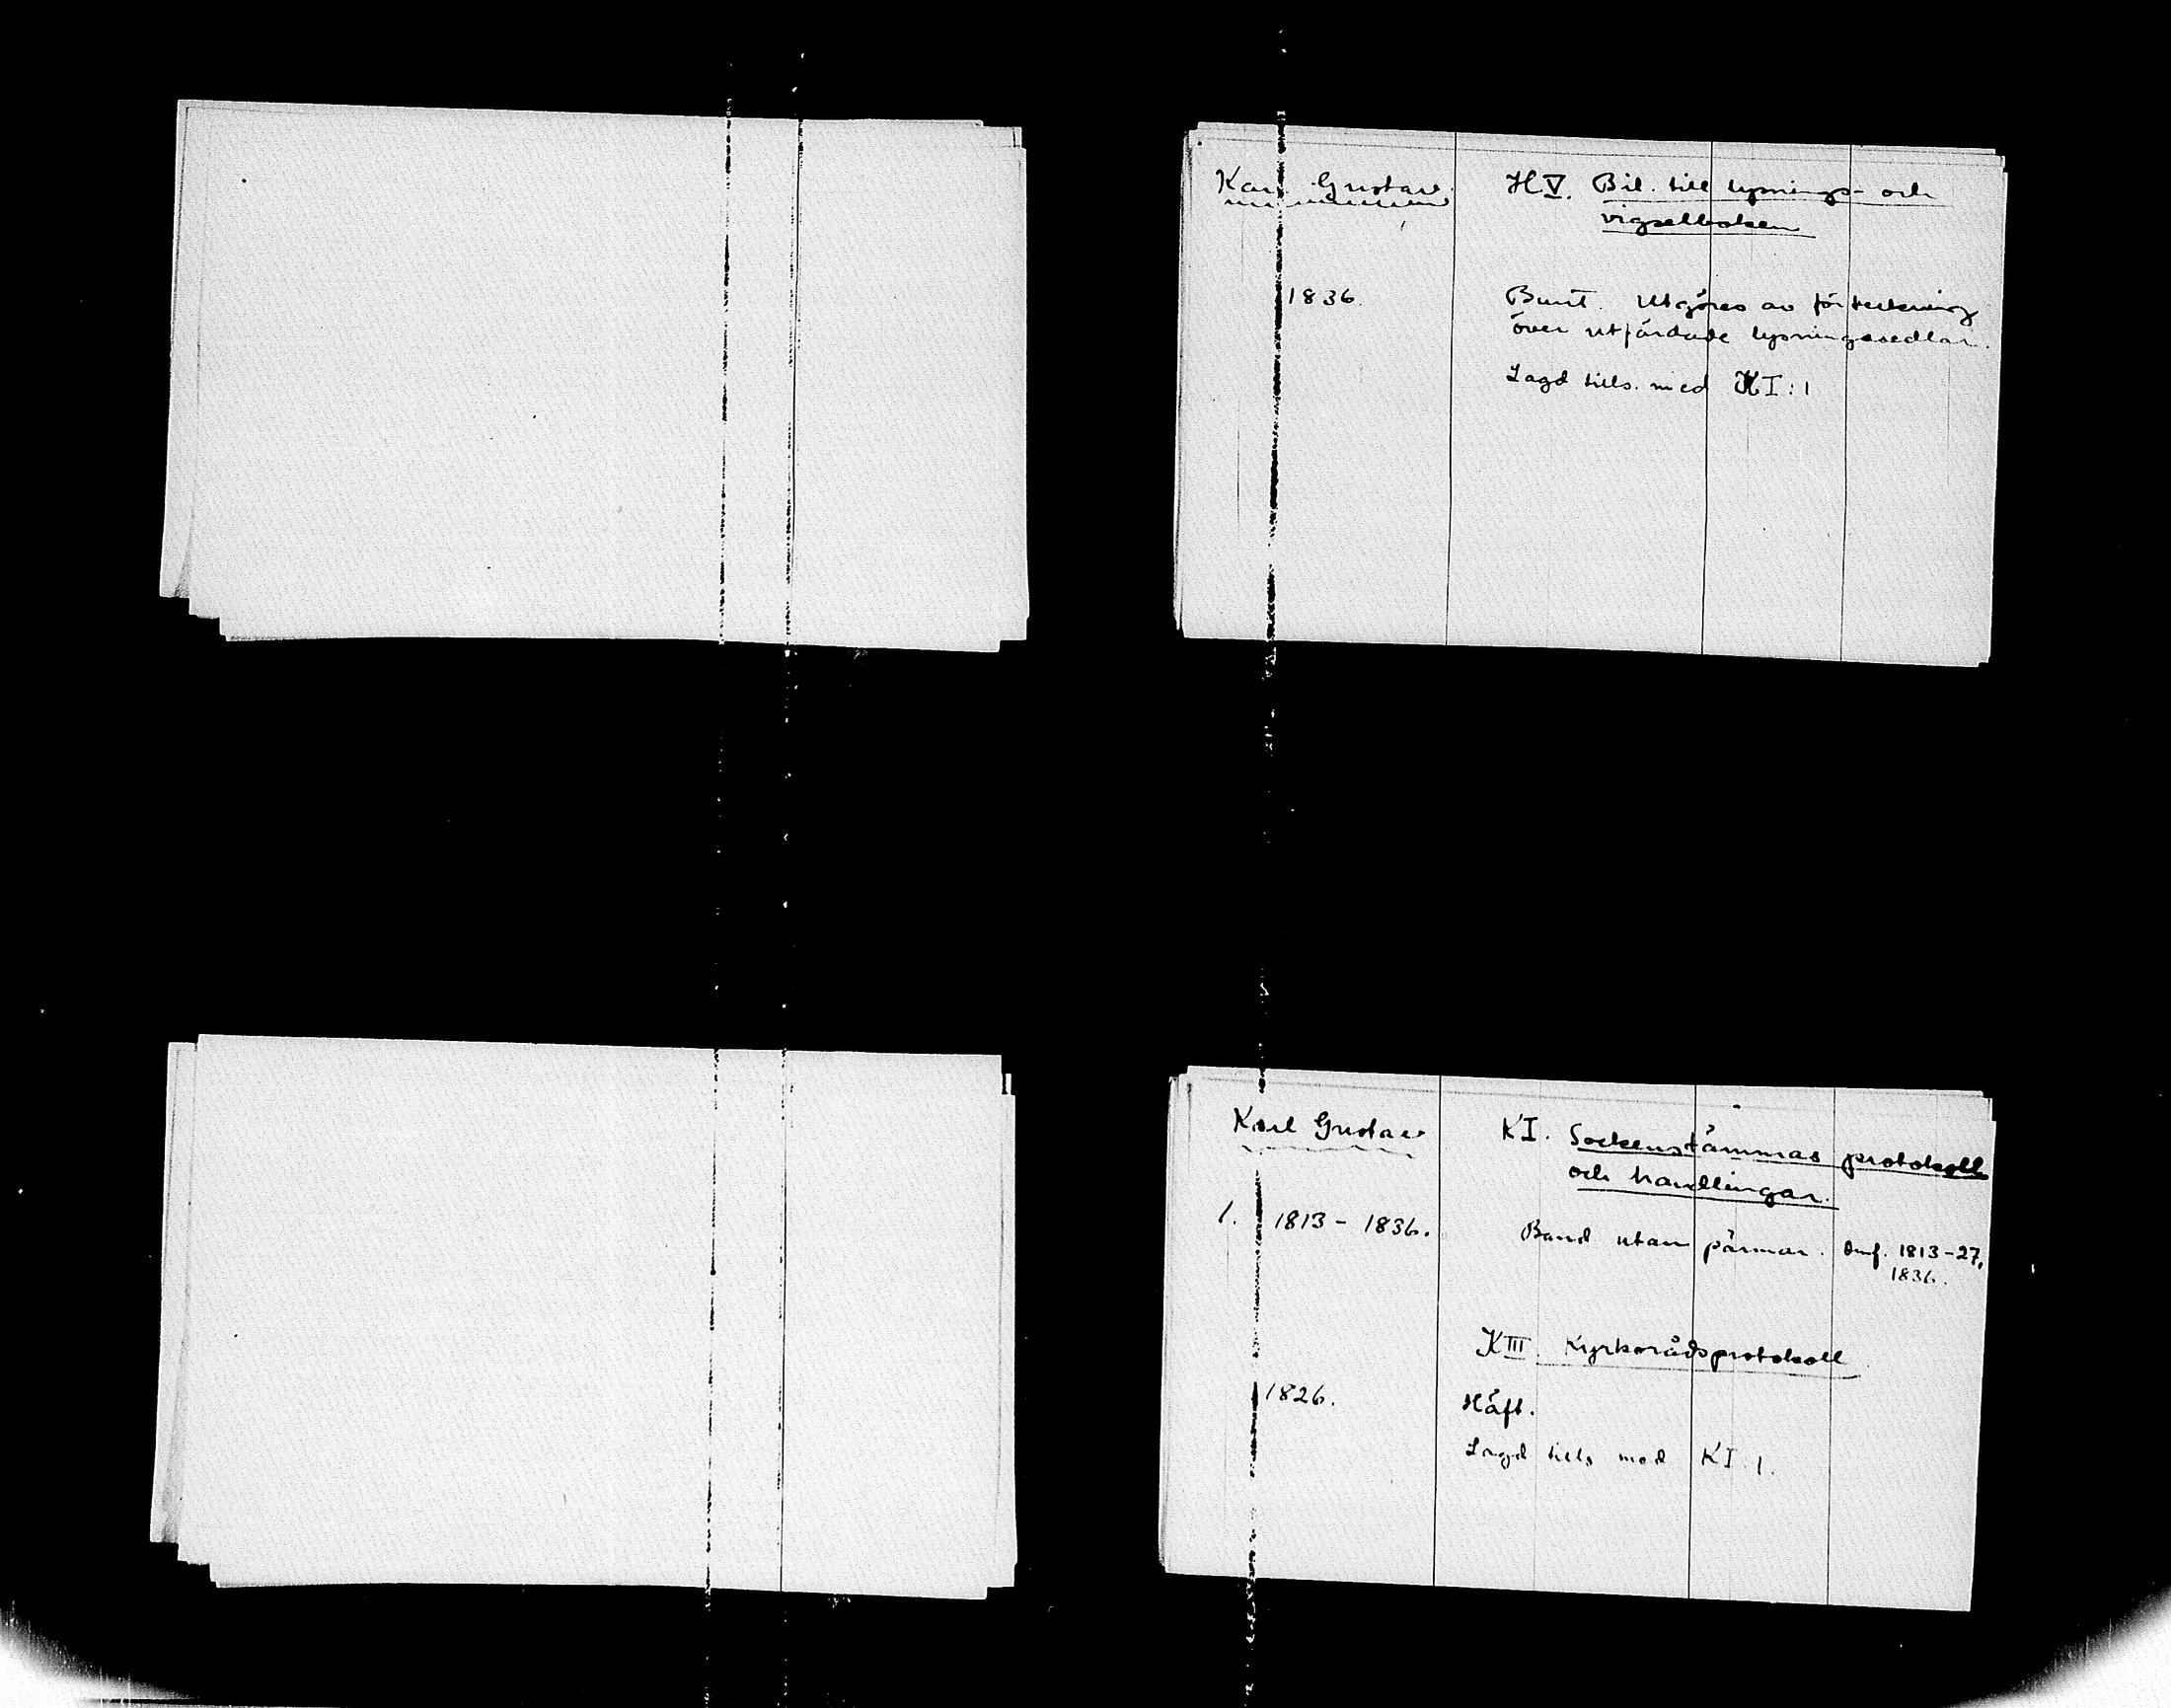 Karl Gustav
H V. Bil. till lysnings- och
vigselboken
1836.
Bunt. Utgöres av förteckning
över utfärdade lysningssedlar.
Lagd tills. med KI:1
Karl Gustav
KI. Sockenstämmas protokoll
och handlingar.
1. 1813 - 1836.
Band utan pärmar. Omf. 1813-27,
1836.
KIII. Kyrkorådsprotokoll
1826.
Häft.
Lagd tills med KI:1.